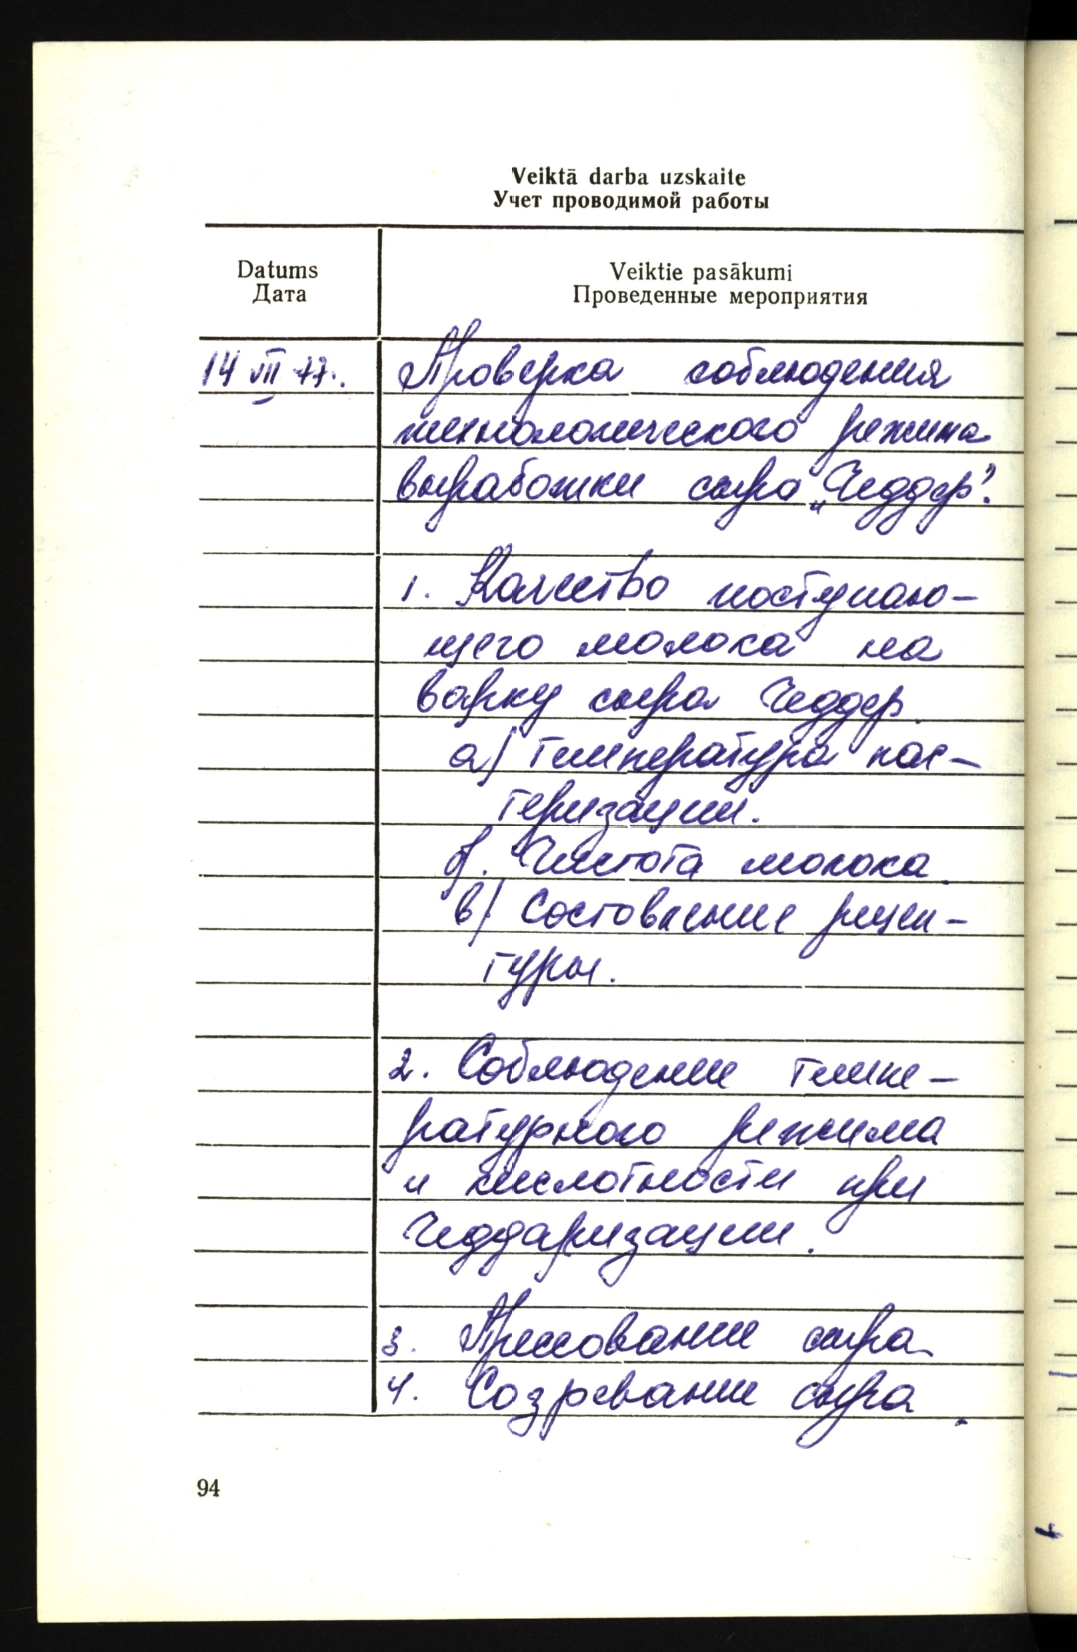 Veiktā darba uzskaite
Учет проводимой работы
Datums
Дата
Veiktie pasākumi
Проведенные мероприятия
14 VII 77. Проверка соблюдения
технологического режима
выработки сыра „Чеддер".
1. Качество поступаю-
щего молока на
варку сыра Чеддер.
а) температура пас-
теризации.
б). Чистота молока.
в) Состовление рецеп-
туры.
2. Соблюдение темпе-
ратурного режима
и кислотности при
Чеддаризации.
3. Прессование сыра
4. Созревание сыра.
94